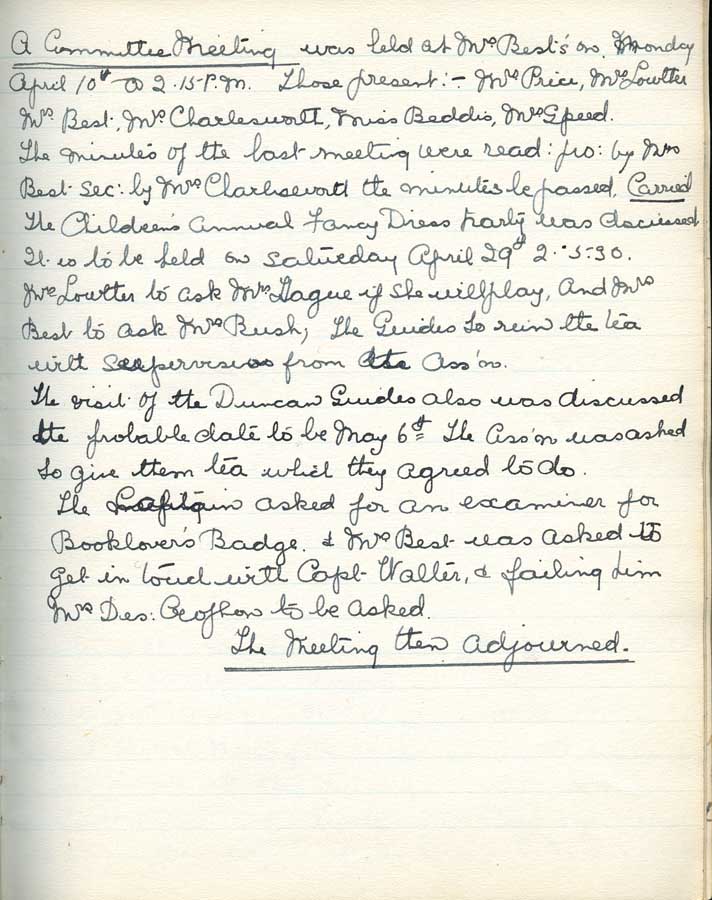 A Committee Meeting was held at Mrs Best's on Monday
April 10th @ 2.15 P.M. Those present:- Mrs Price, Mrs Lowther
Mrs Best, Mrs Charlesworth, Miss Beddis, Mrs Speed.
The minutes of the last meeting were read: pro: by Mrs
Best Sec: by Mrs Charlesworth the minutes be passed, Carried
The Children's Annual Fancy Dress Party was discussed
It is to be held on Saturday April 29th 2.-5-30.
Mrs Lowther to ask Mrs Hague if she will play, And Mrs
Best to ask Mrs Rush; The Guides to run the tea
with supervision from the Ass'on.
The visit of the Duncan Guides also was discussed
the probable date to be May 6th The Ass'on was asked
to give them tea which they agreed to do.
The Captain asked for an examiner for
Booklover's Badge. & Mrs Best was asked to
get in touch with Capt Walter, & failing him
Mrs Des: to be asked.
The Meeting then adjourned.